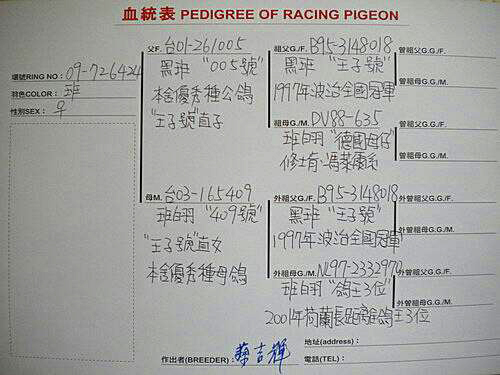 血統表 PEDIGREE OF RACING PIGEON
環號RING NO：09-726424
羽色COLOR： 班
性別SEX： ♀
父F. 台01-261005
黑班 "005號"
本舍優秀種公鴿
"王子號"直子
母M. 台03-165409
班白羽 "409號"
"王子號"直女
本舍優秀種母鴿
祖父G./F. B95-3148018
黑班 "王子號"
1997年波治全國冠軍
祖母G./M. DV88-635
班白羽 "德國母仔"
修士肯·馮萊爾系
外祖父G./F. B95-3148018
黑班 "王子號"
1997年波治全國冠軍
外祖母G./M. NL97-2332970
班白羽 "鴿王3位"
2001年荷蘭長距離鴿王3位
曾祖父G.G./F.
曾祖母G.G./M.
曾祖父G.G./F.
曾祖母G.G./M.
外曾祖父G.G./F.
外曾祖母G.G./M.
外曾祖父G.G./F.
外曾祖母G.G./M.
作出者(BREEDER)： 蔡吉輝
地址(address)：
電話(TEL)：